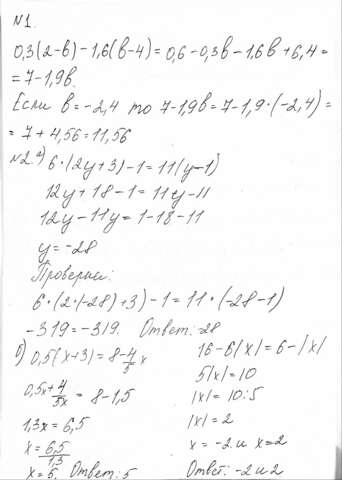 №1.
0,3(2-в)-1,6(в-4)=0,6-0,3в-1,6в+6,4=
=7-1,9в.
Если в=-2,4 то 7-1,9в=7-1,9·(-2,4)=
=7+4,56=11,56
№2.а)
6·(2y+3)-1=11(y-1)
12y+18-1=11y-11
12y-11y=1-18-11
y=-28
Проверка:
6·(2·(-28)+3)-1=11·(-28-1)
-319=-319. Ответ:-28
б) 0,5(x+3)=8-4/5x
0,5x+4/5x=8-1,5
1,3x=6,5
x=6,5/1,3
x=5. Ответ:5
16-6|x|=6-|x|
5|x|=10
|x|=10:5
|x|=2
x=-2 и x=2
Ответ: -2 и 2